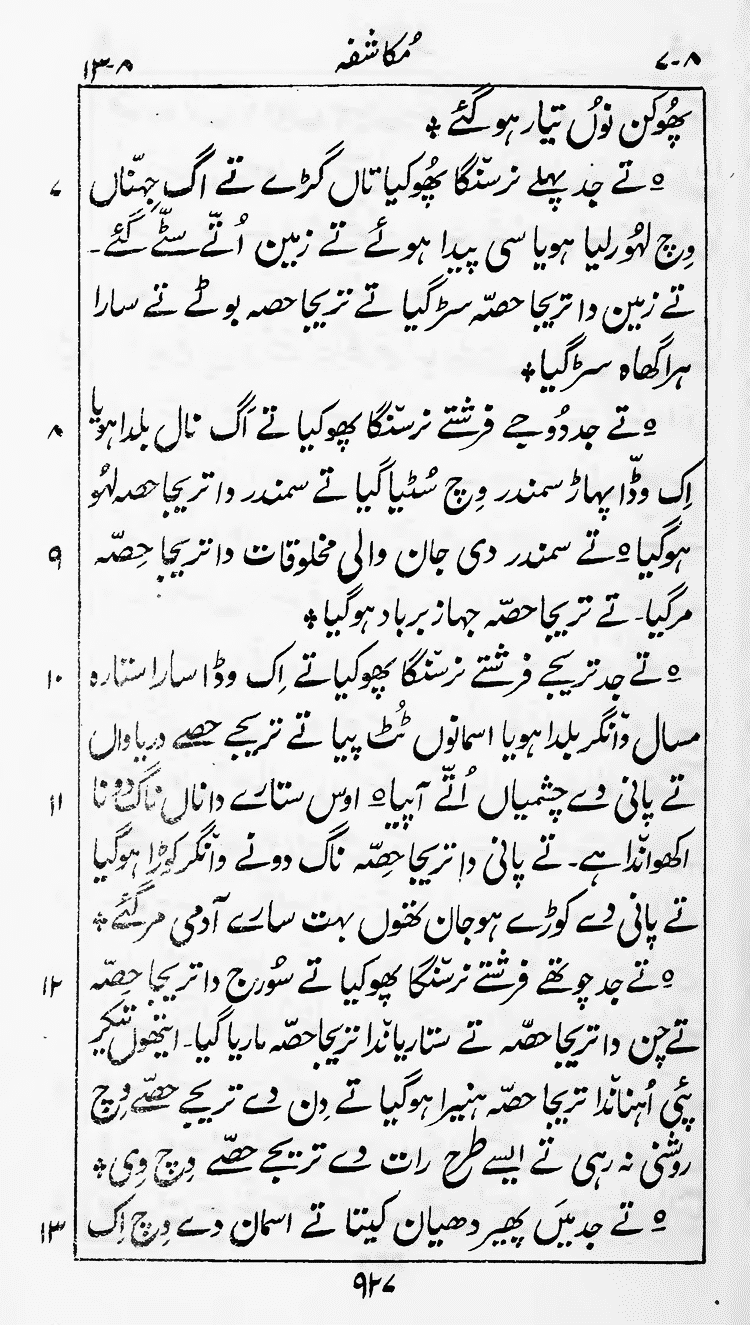 ۷-۸ مُکاشفہ ۸-۱۳
پھُوکن نوُں تیار ہو گئے ٭
۷ ○ تے جد پہلے نرسنّگا پھُوکیا تاں گڑے تے اگ جہنّاں
وِچ لہُو رلیا ہویا سی پیدا ہوئے تے زمین اُتّے سٹّے گئے۔
تے زمین دا تریجا حصّہ سڑ گیا تے تریجا حصہ بوٹے تے سارا
ہرا گھاہ سڑ گیا ٭
۸ ○ تے جد دُوجے فرشتے نرسنّگا پھوکیا تے اَگ نال بلدا ہویا
اِک وڈّا پہاڑ سمندر وِچ سُٹیا گیا تے سمندر دا تریجا حصہ لہُو
۹ ہوگیا ○ تے سمندر دی جان والی مخلوقات دا تریجا حِصّہ
مر گیا۔ تے تریجا حصّہ جہاز برباد ہوگیا ٭
۱۰ ○ تے جد تریجے فرشتے نرسنّگا پھوکیا تے اِک وڈا سارا ستارہ
مسال وانّگر بلدا ہویا اسمانوں ٹُٹ پیا تے تریجے حصے دریاواں
۱۱ تے پانی دے چشمیاں اُتّے آپیا ○ اوس ستارے دا نال ناگ دونا
اکھوانّدا ہے۔ تے پانی دا تریجا حِصّہ ناگ دونے وانّگر کوڑا ہوگیا
تے پانی دے کوڑے ہو جان کتھوں بہت سارے آدمی مر گئے ٭
۱۲ ○ تے جد چوتھے فرشتے نرسنّگا پھوکیا تے سُورج دا تریجا حِصّہ
تے چن دا تریجا حصّہ تے ستاریانّدا تریجا حصّہ ماریا گیا۔ ایتھوں تیکر
پئی اُہنانّدا تریجا حصّہ ہنیرا ہوگیا تے دِن دے تریجے حصّے وِچ
روشنی نہ رہی تے ایسے طرح رات دے تریجے حصّے وِچ وِی ٭
۱۳ ○ تے جد میَں پھیر دھیان کیتا تے اسمان دے وِچ اِک
۹۲۷